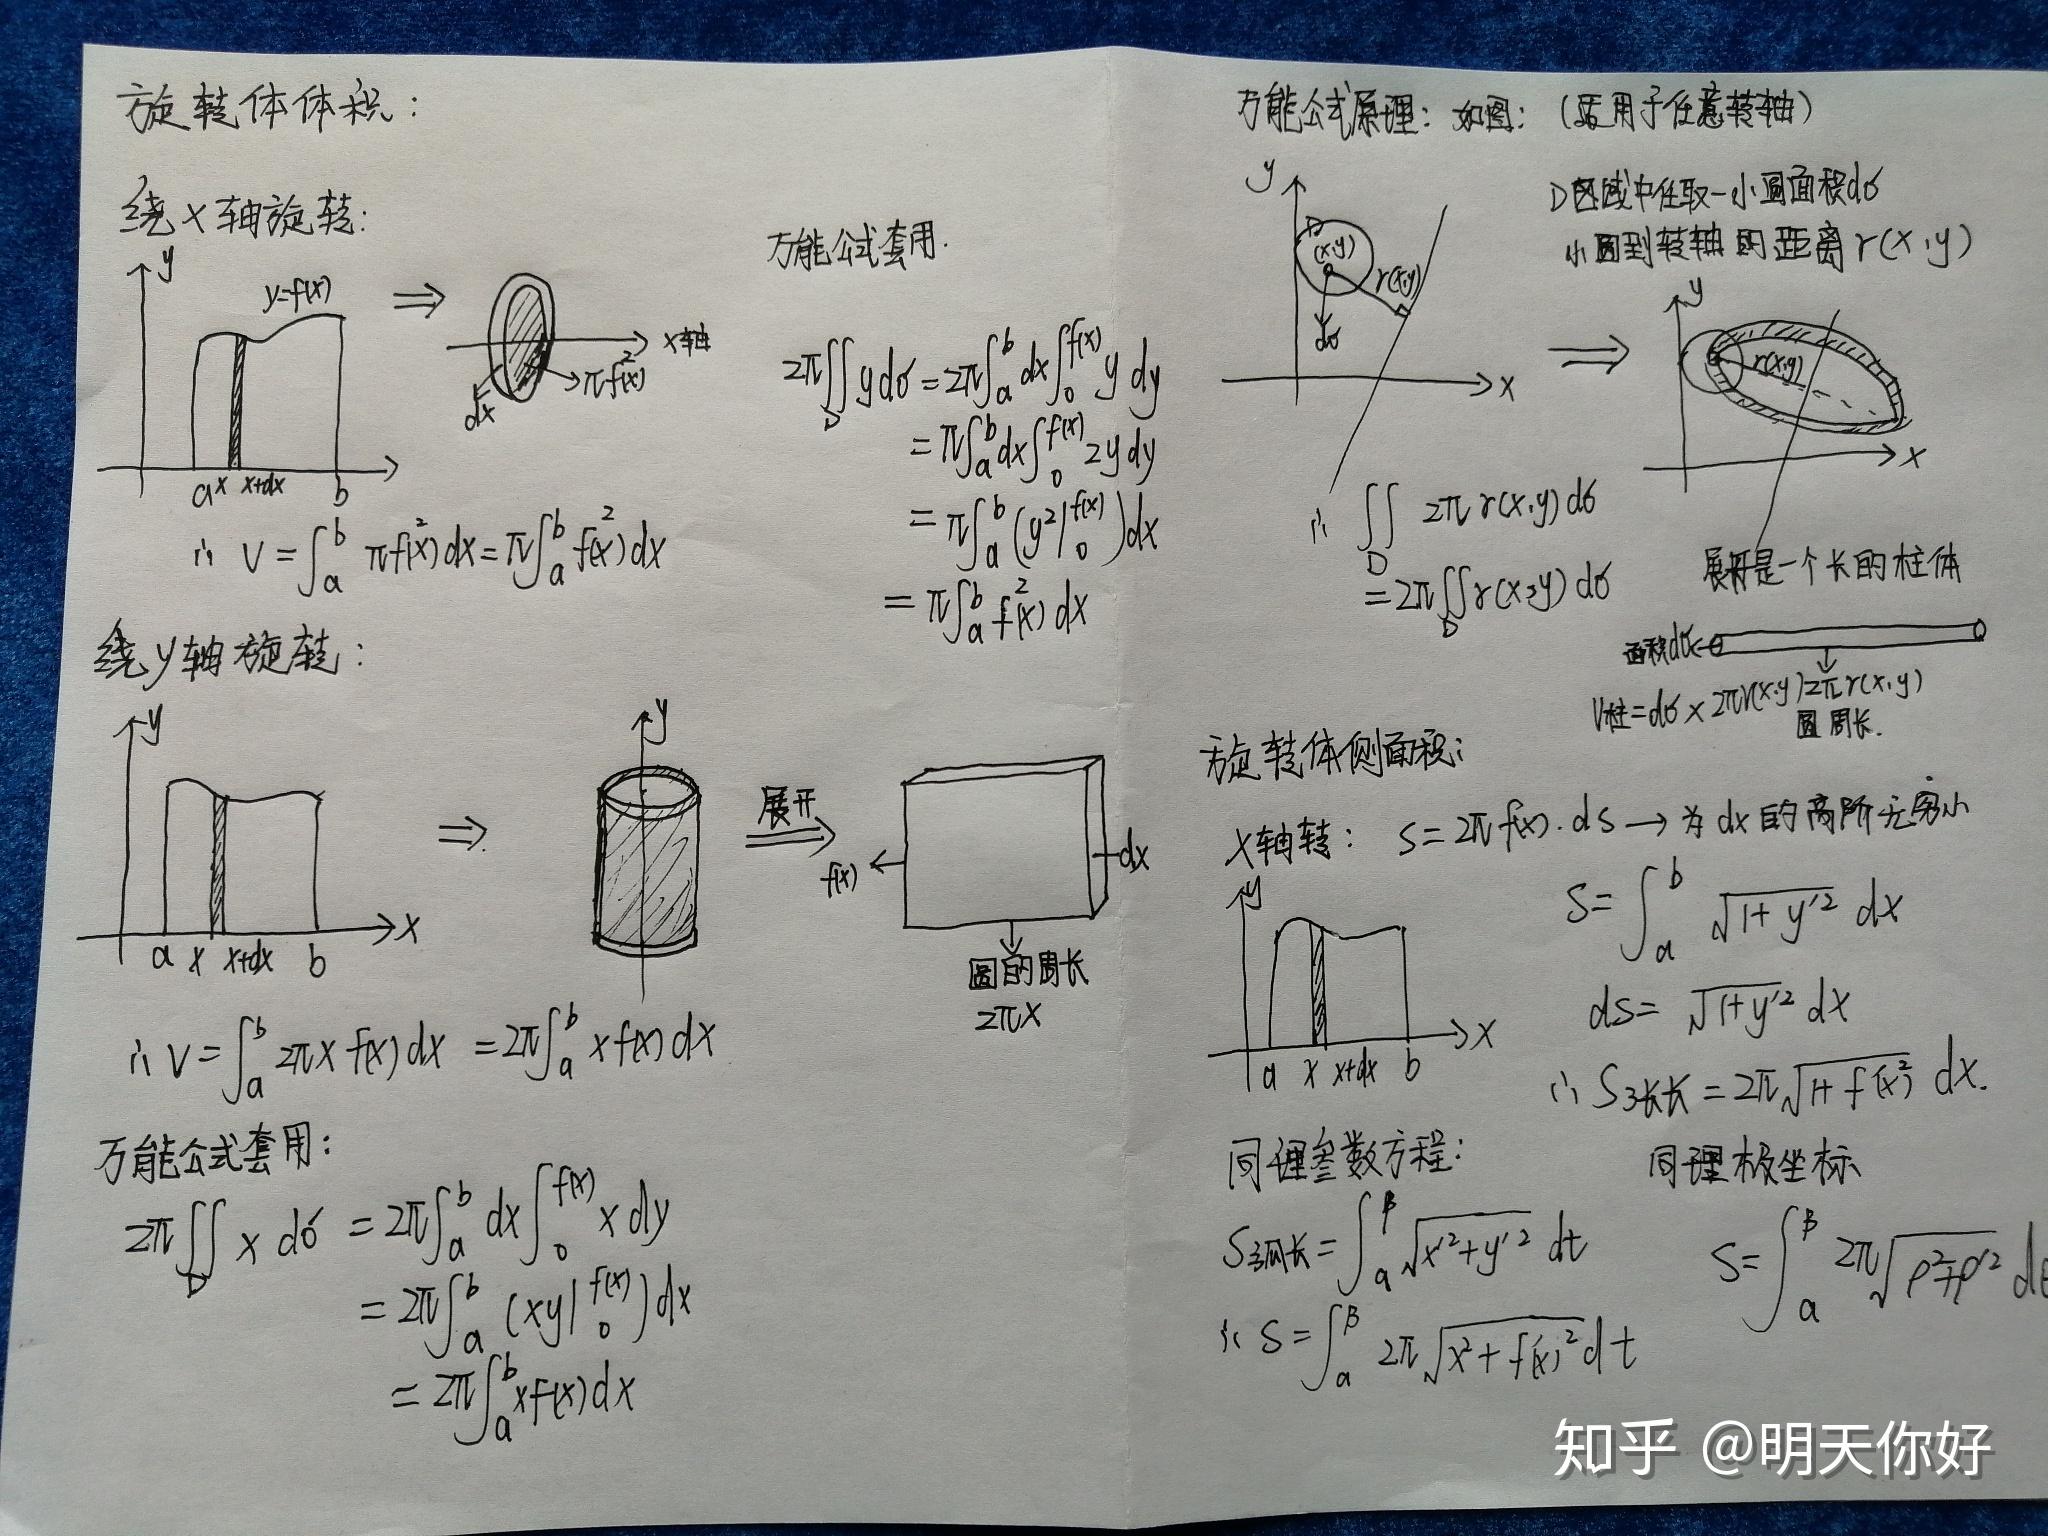 旋转体体积：
绕x轴旋转：
y
y=f(x)
⇒
x轴
πf²(x)
dx
a x x+dx b
∴ V=∫_a^b πf²(x)dx=π∫_a^b f²(x)dx
万能公式套用.
2π∬_D ydσ=2π∫_a^b dx∫_0^{f(x)} y dy
=π∫_a^b dx∫_0^{f(x)} 2y dy
=π∫_a^b (y²|_0^{f(x)})dx
=π∫_a^b f²(x)dx
绕y轴旋转：
y
x
a x x+dx b
⇒
y
展开
f(x)
dx
圆的周长
2πx
∴ V=∫_a^b 2πx f(x)dx =2π∫_a^b x f(x)dx
万能公式套用：
2π∬_D x dσ =2π∫_a^b dx∫_0^{f(x)} x dy
=2π∫_a^b (xy|_0^{f(x)})dx
=2π∫_a^b xf(x)dx
万能公式原理：如图：（适用于任意转轴）
D区域中任取一小圆面积dσ
小圆到转轴的距离r(x,y)
y
D
(x,y)
r(x,y)
dσ
x
⇒
y
r(x,y)
x
∴ ∬_D 2πr(x,y)dσ
=2π∬_D r(x,y)dσ
展开是一个长的柱体
面积dσ
2πr(x,y)
V柱=dσ×2πr(x,y)
圆周长.
旋转体侧面积：
x轴转： S=2πf(x)·ds→为dx的高阶无穷小
y
x
a x x+dx b
S=∫_a^b √(1+y'²) dx
ds=√(1+y'²) dx
∴ S弧长=2π√(1+f'(x)²) dx.
同理参数方程：
S弧长=∫_a^β √(x'²+y'²) dt
∴ S=∫_a^β 2π√(x²+f(x)²)dt
同理极坐标
S=∫_a^β 2π√(ρ²+ρ'²) dθ
知乎 @明天你好